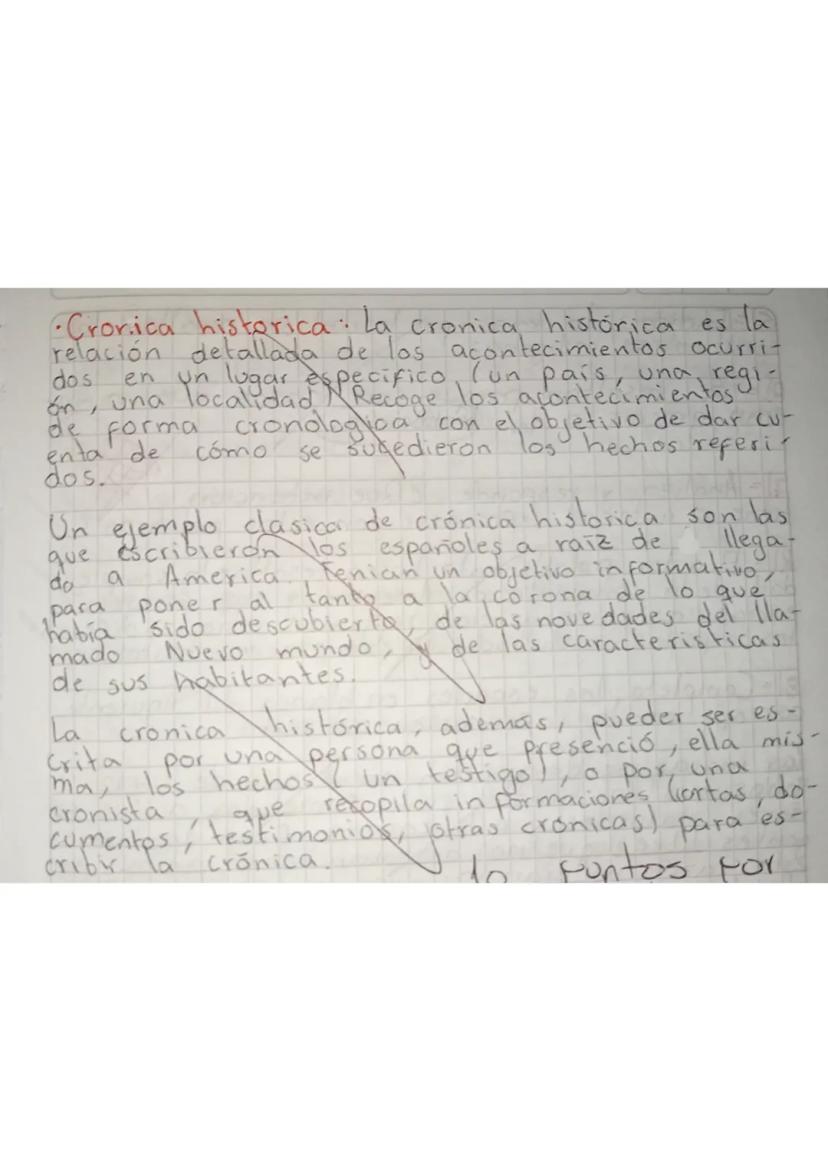 ·Cronica historica: La cronica histórica es la
relación detallada de los acontecimientos ocurri-
dos en un lugar especifico, (un país, una regi-
ón, una localidad). Recoge los acontecimientos
de forma cronologica con el objetivo de dar cu-
enta de cómo se sucedieron los hechos referi-
dos.
Un ejemplo clasico de crónica historica son las
que escribieron los españoles a raíz de llega-
da a America. Tenian un objetivo informativo,
para poner al tanto a la corona de lo que
había sido descubierto, de las novedades del lla-
mado Nuevo mundo, y de las caracteristicas
de sus habitantes.
La cronica histórica, además, pueder ser es-
crita por una persona que presenció, ella mis-
ma, los hechos (un testigo), o por una
cronista, que recopila informaciones (cartas, do-
cumentos, testimonios, otras crónicas) para es-
cribir la crónica.
10 Puntos Por